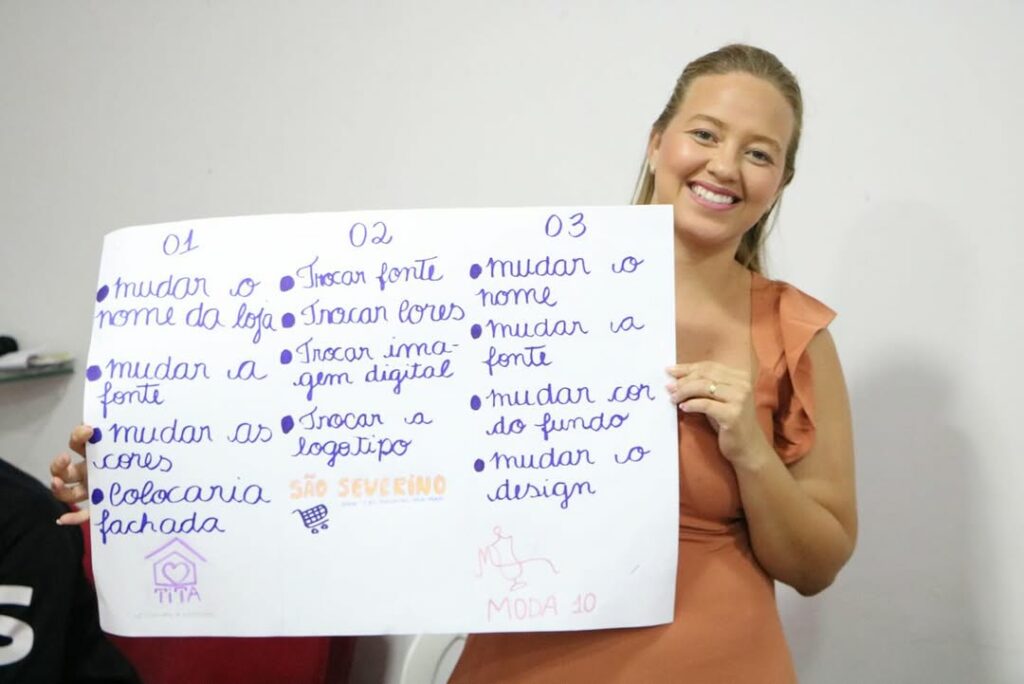 01
• mudar o
nome da loja
• mudar a
fonte
• mudar as
cores
• Colocaria
fachada
TiTA
02
• Trocar fonte
• Trocar Cores
• Trocar ima-
gem digital
• Trocar a
logotipo
SÃO SEVERINO
03
• mudar o
nome
• mudar a
fonte
• mudar cor
do fundo
• mudar o
design
MODA 10
S